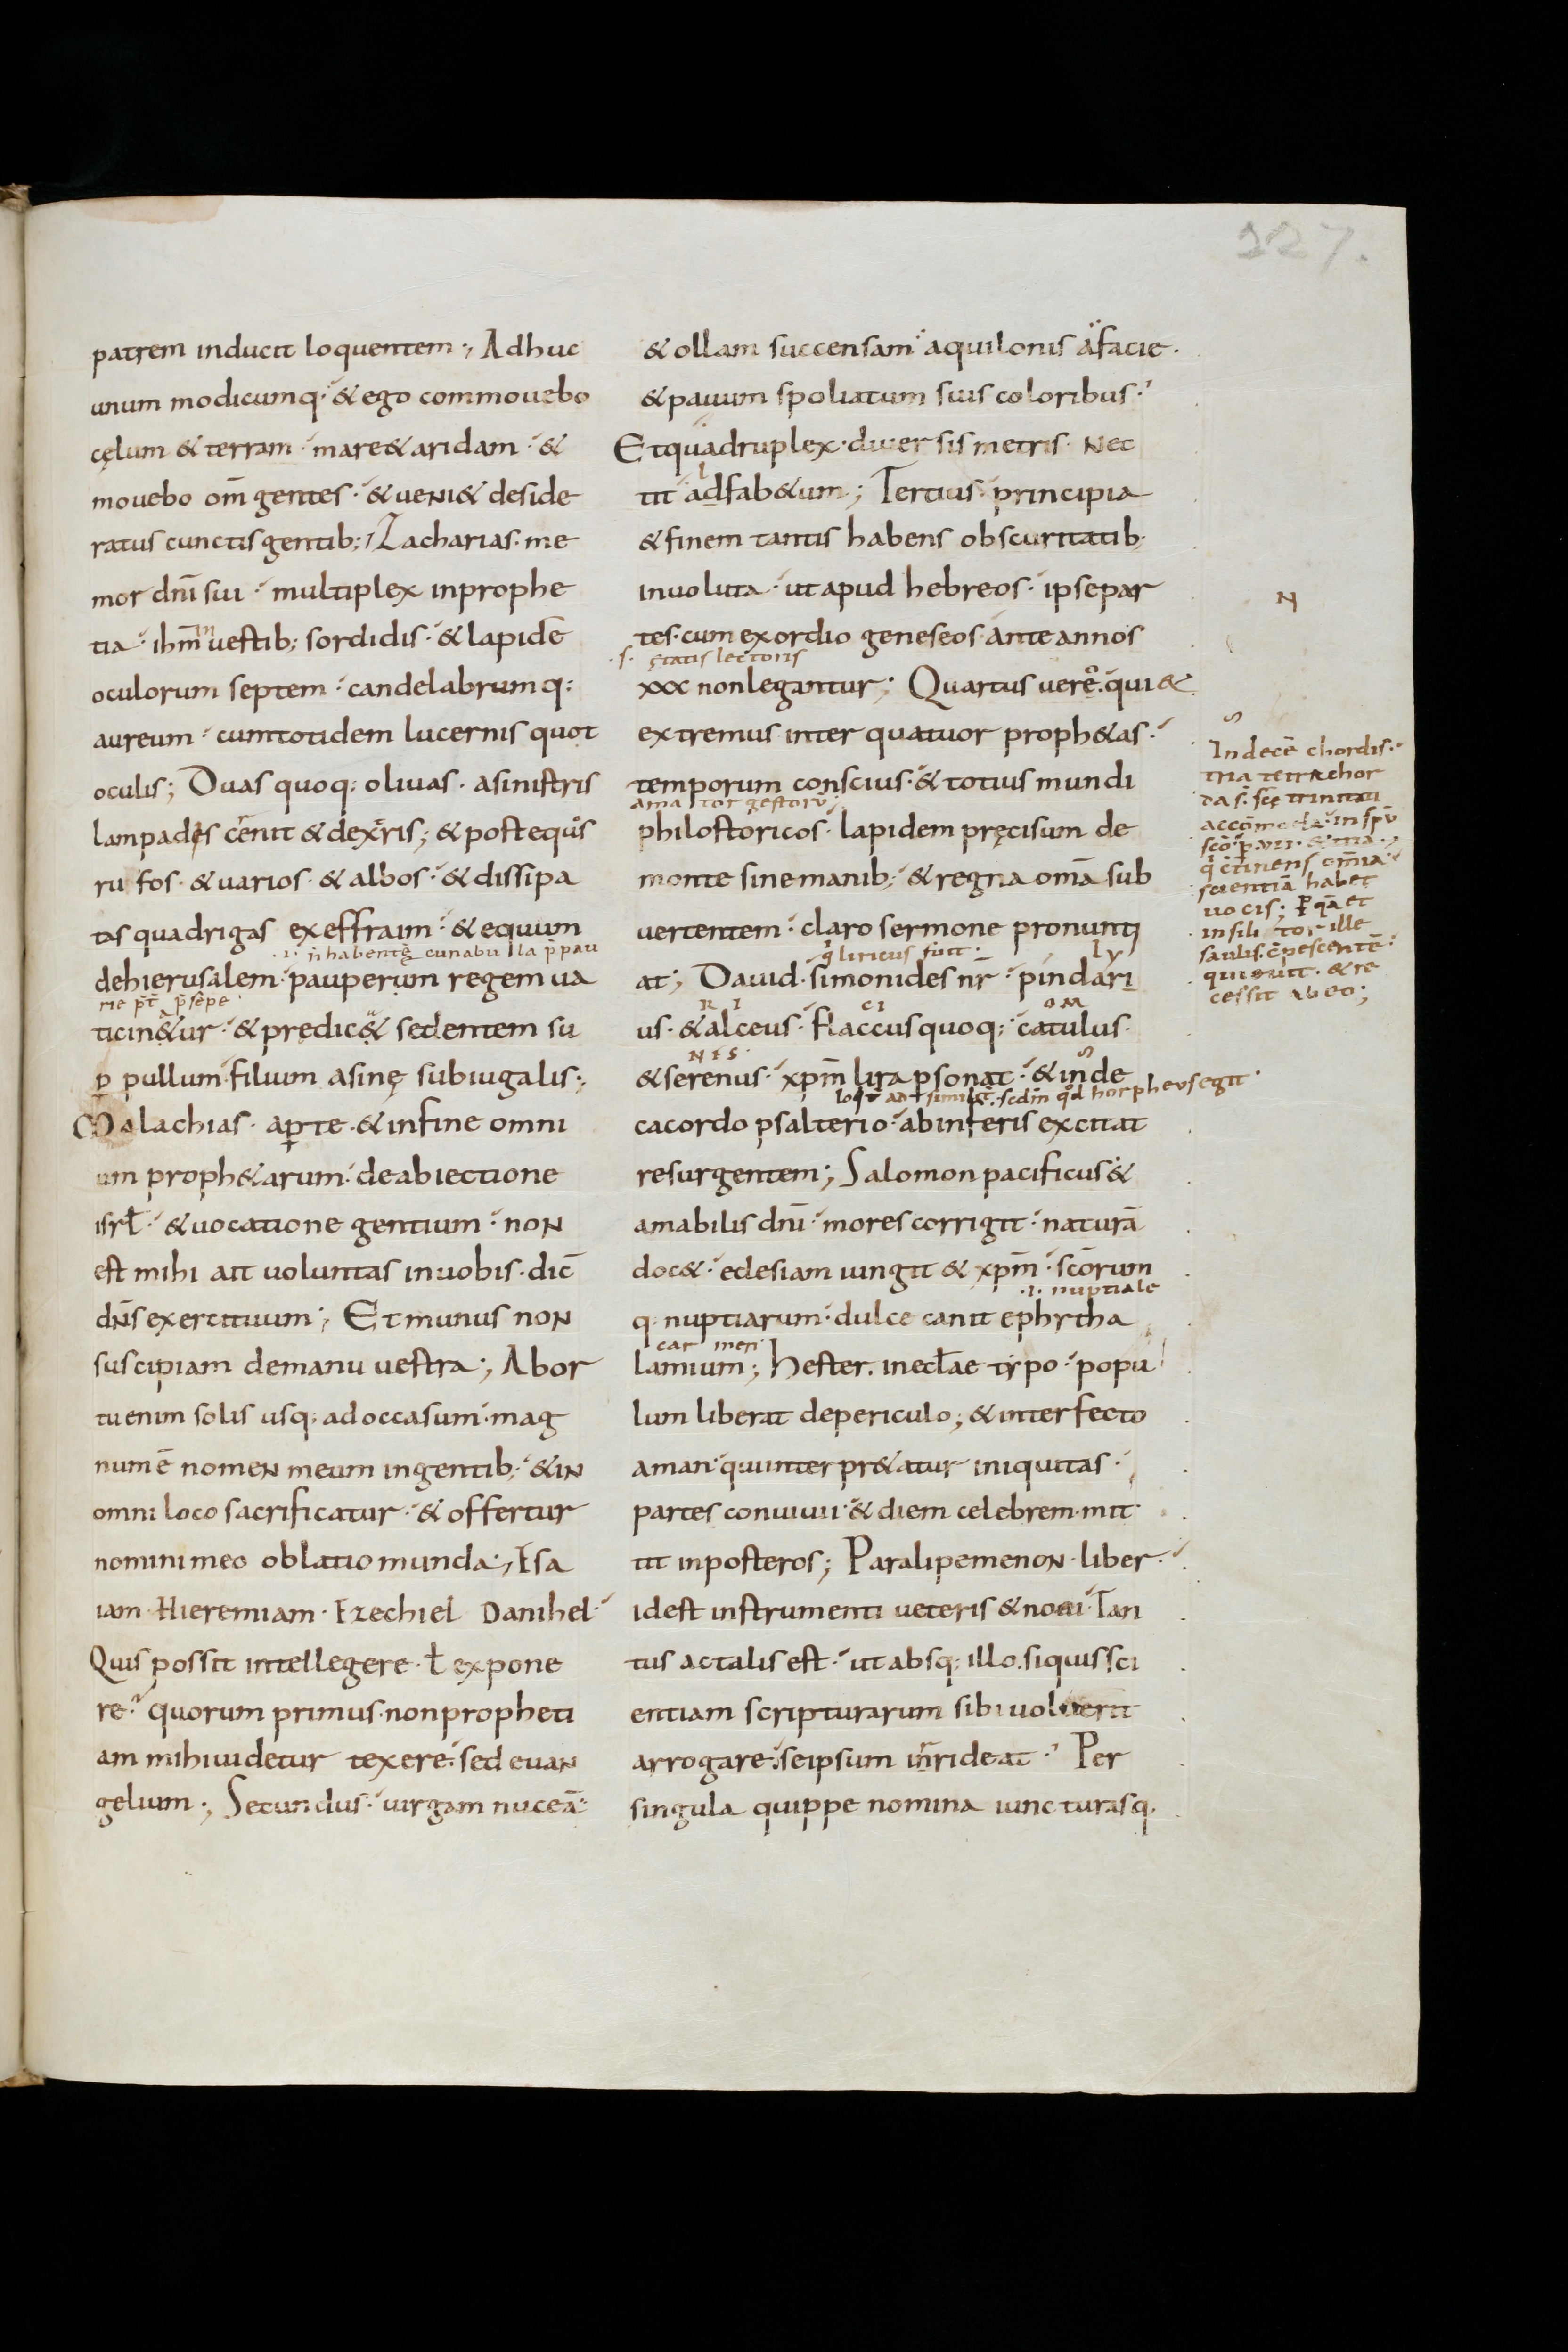 227.
patrem inducit loquentem; Adhuc
unum modicumq· & ego commouebo
cęlum & terram· mare & aridam· &
mouebo om̄ gentes· & ueni& deside
ratus cunctis gentib; Zacharias· me
mor dn̄i sui· multiplex inprophe
tia· ih̄m uestib; sordidis· & lapidē
oculorum septem· candelabrumq:
aureum· cumtotidem lucernis quot
oculis; Duas quoq: oliuas· asinistris
lampades cernit & dextris; & postequos
rufos· & uarios· & albos· & dissipa
tas quadrigas exeffraim· & equum
dehierusalem· pauperum regem ua
ticin&ur· & predic& sedentem su
p̱ pullum· filium asinę subiugalis;
Malachias· aꝑte· & infine omni
um proph&arum· deabiectione
isrł· & uocatione gentium· non
est mihi ait uoluntas inuobis· dic̄
dn̄s exercituum; Et munus non
suscipiam demanu uestra; Abor
tu enim solis usq; ad occasum· mag
num ē nomen meum ingentib;· & in
omni loco sacrificatur· & offertur
nomini meo oblatio munda; Esa
iam· Hieremiam· Ezechiel Danihel·
Quis possit intellegere· ł expone
re? quorum primus· non propheti
am mihi uidetur texere· sed euan
gelium; Secundus· uirgam nuceā·
& ollam succensam· aquilonis afacie·
& pauum spoliatum suis coloribus·
Et quadruplex· diuersis metris· nec
tit adfab&um; Tertius· principia
& finem tantis habens obscuritatib;
inuoluta· ut apud hebreos· ipse par
tes· cum exordio geneseos· ante annos
·s· ętatis lectoris
xxx non legantur; Quartus uero· qui &
extremus inter quatuor proph&as·
temporum conscius· & totius mundi
amator gestorū
philostoricos· lapidem pręcisum de
monte sine manib;· & regna omā sub
uertentem· claro sermone pronunti
at; Dauid· simonides nr̄· pindari
us· & alceus· flaccus quoq:· catulus·
& serenus· xp̄m lira ꝑsonat· & inde
cacordo psalterio· ab inferis excitat
resurgentem; Salomon pacificus &
amabilis dn̄i· mores corrigit· naturā
doc&· eclesiam iungit & xp̄m· sc̄orum
·i· nuptiale
q· nuptiarum· dulce canit ephytha
car men
lamium; hester· in ecl̄ae typo· popu
lum liberat de periculo; & interfecto
aman· qui interpr&atur iniquitas·
partes conuiuii· & diem celebrem· mit
tit in posteros; Paralipemenon· liber·
id est instrumenti ueteris & noui· Tan
tus ac talis est· ut absq; illo· siquis sci
entiam scripturarum sibi uoluerit
arrogare· seipsum inrideat· Per
singula quippe nomina iuncturasq·
N
In decē chordis·
tria tetrachor
da s· scę trinitati
scientiā habet
uocis; Ꝑ qā et
saulis cōpescente·
qui & re
cessit ab eo;